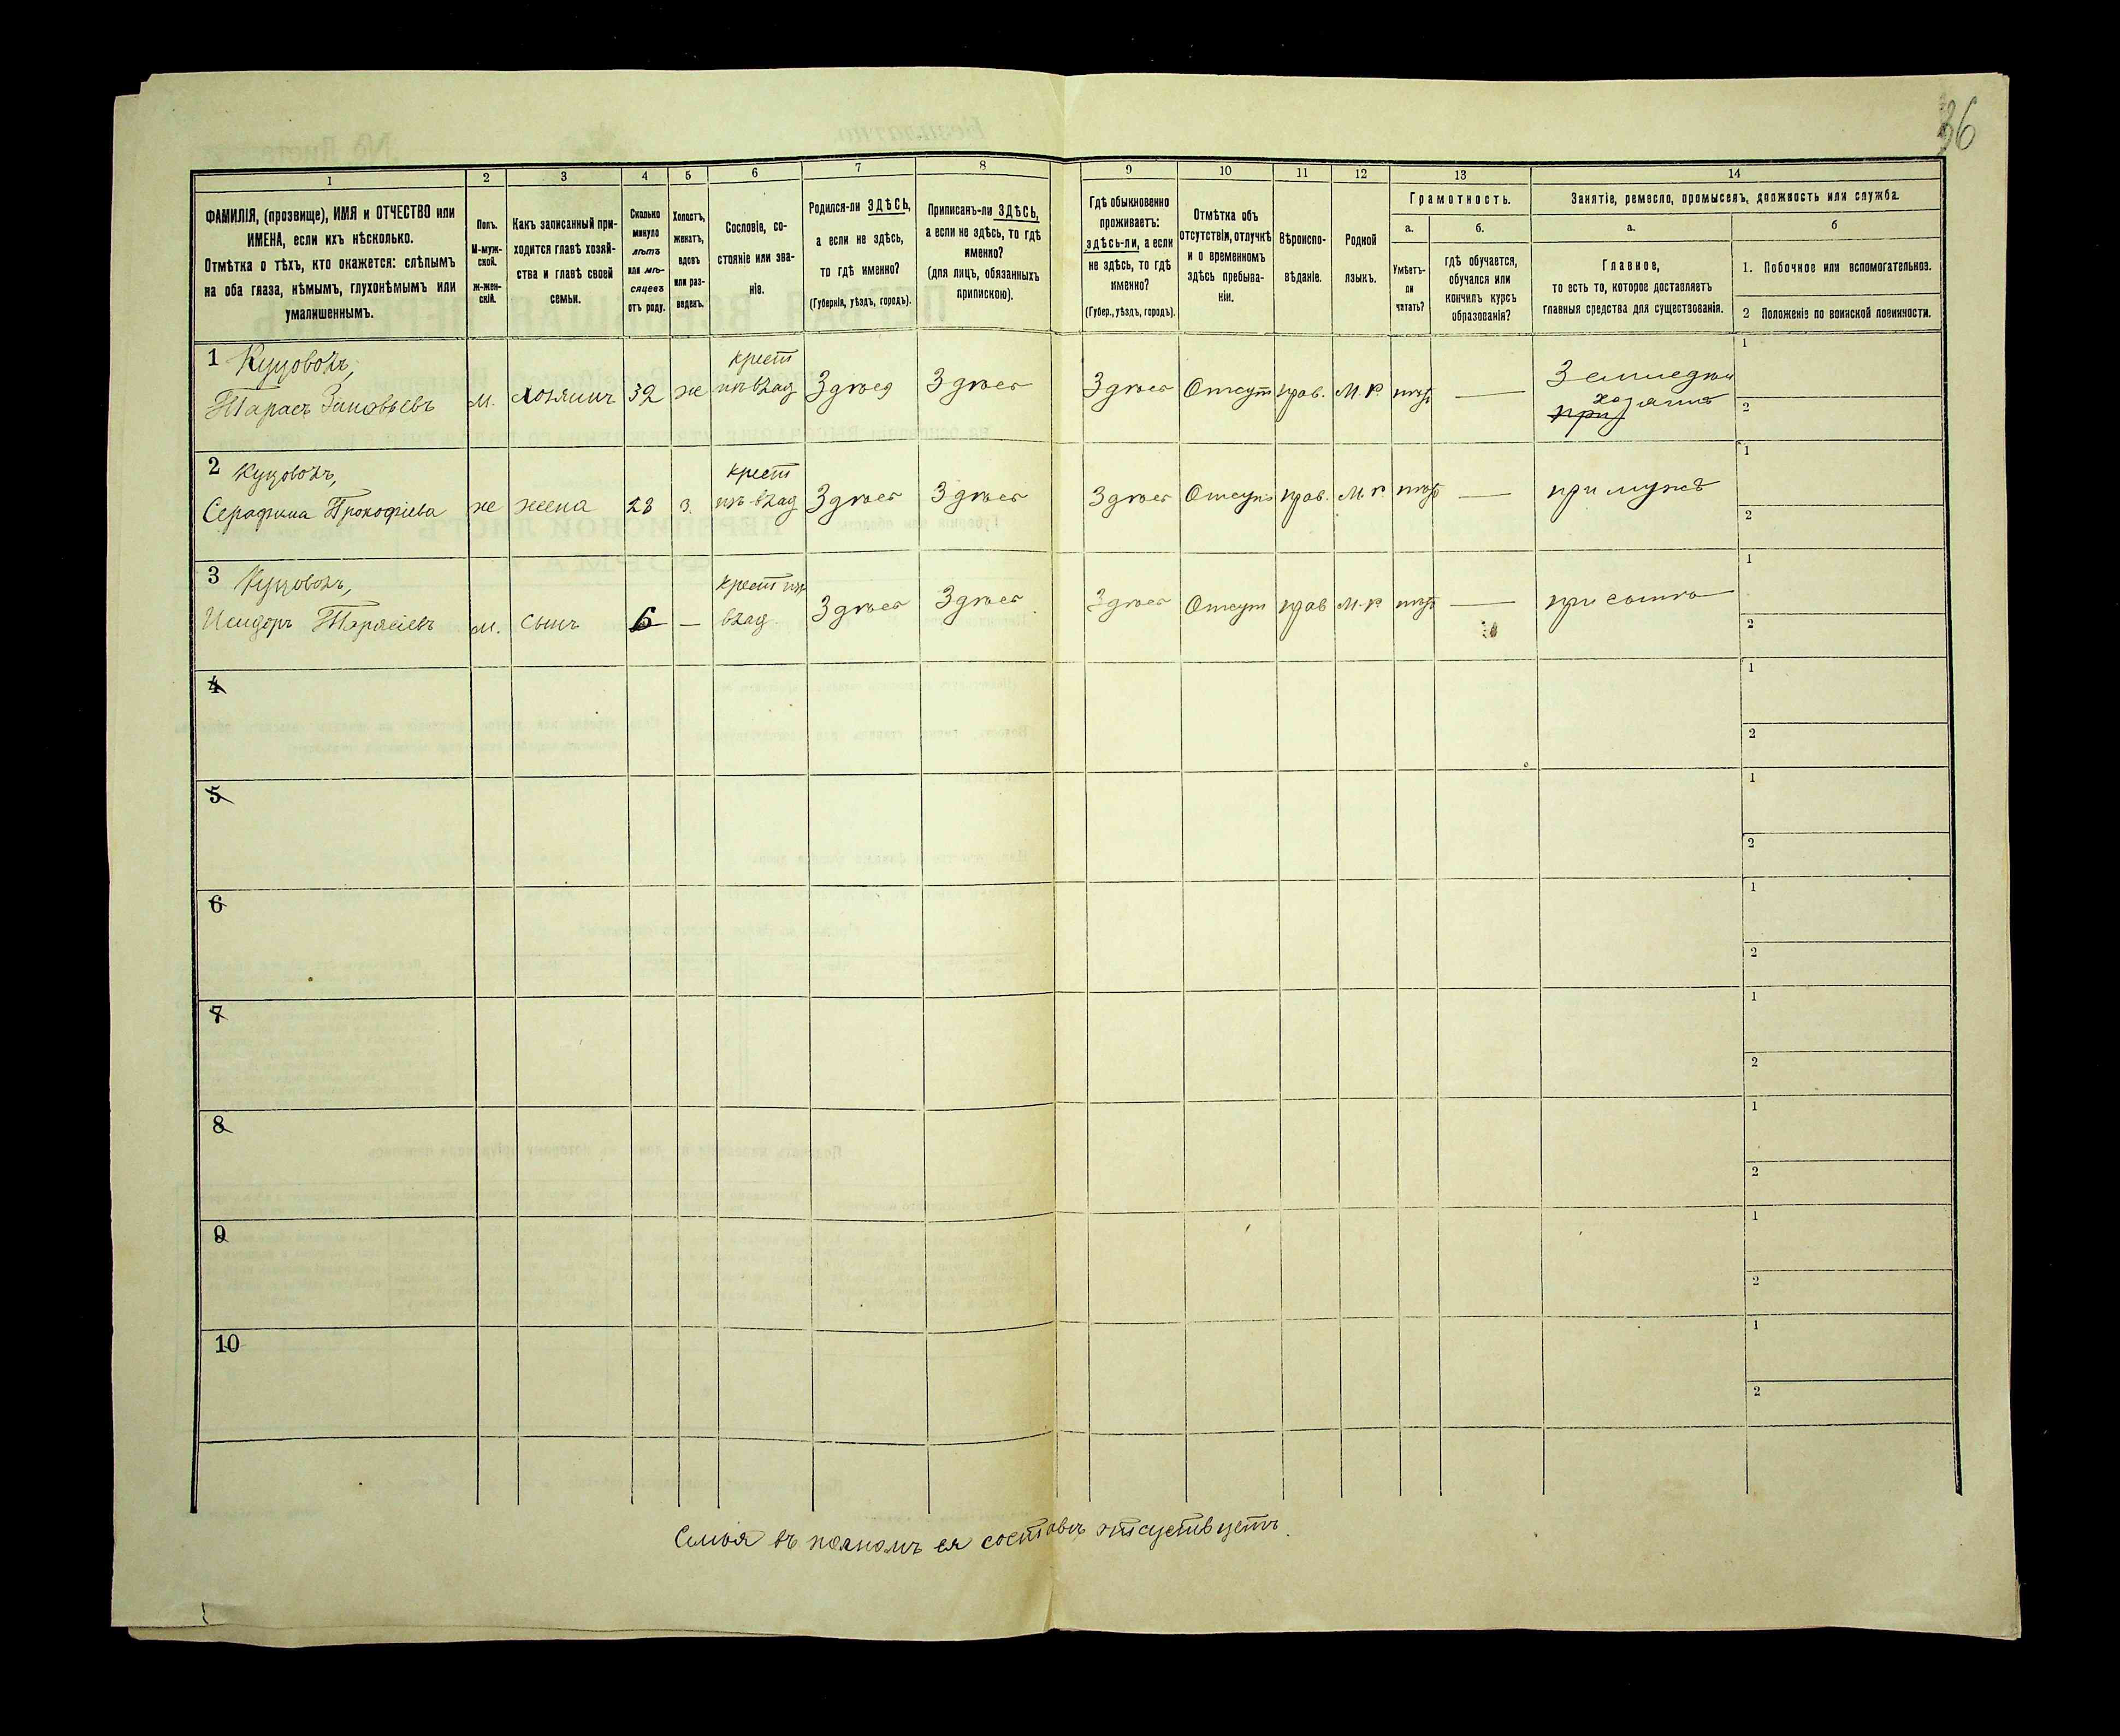 36
1
2
3
4
5
6
7
8
9
10
11
12
13
14
ФАМИЛІЯ, (прозвище), ИМЯ и ОТЧЕСТВО или
ИМЕНА, если ихъ нѣсколько.
Отмѣтка о тѣхъ, кто окажется: слѣпымъ
на оба глаза, нѣмымъ, глухонѣмымъ или
умалишеннымъ.
Полъ.
М-муж-
ской.
ж-жен-
скій.
Какъ записанный при-
ходится главѣ хозяй-
ства и главѣ своей
семьи.
Сколько
минуло
лѣтъ
или мѣ-
сяцевъ
отъ роду.
Холостъ,
женатъ,
вдовъ
или раз-
веденъ.
Сословіе, со-
стояніе или зва-
ніе.
Родился-ли ЗДѢСЬ,
а если не здѣсь,
то гдѣ именно?
(Губернія, уѣздъ, городъ).
Приписанъ-ли ЗДѢСЬ,
а если не здѣсь, то гдѣ
именно?
(для лицъ, обязанныхъ
припискою).
Гдѣ обыкновенно
проживаетъ:
здѣсь-ли, а если
не здѣсь, то гдѣ
именно?
(Губер., уѣздъ, городъ).
Отмѣтка объ
отсутствіи, отлучкѣ
и о временномъ
здѣсь пребыва-
ніи.
Вѣроиспо-
вѣданіе.
Родной
языкъ.
Грамотность.
а.
б.
Умѣетъ-
ли
читать?
гдѣ обучается,
обучался или
кончилъ курсъ
образованія?
Занятіе, ремесло, промыселъ, должность или служба.
а.
б
Главное,
то есть то, которое доставляетъ
главныя средства для существованія.
1. Побочное или вспомогательное.
2 Положеніе по воинской повинности.
1 Куцоволъ,
Тарасъ Зиновьевъ
м.
хозяинъ
32
ж
крест
изъ влад
Здѣсь
Здѣсь
Здѣсь
Отсут
прав.
М. Р.
Земледѣл
хозяинъ
1
2
2 Куцоволъ,
Серафима Прокофіева
ж
жена
28
з.
крест
изъ влад
Здѣсь
Здѣсь
Здѣсь
Отсут
прав.
М. Р.
при мужѣ
1
2
3 Куцоволъ,
Исидоръ Тарасіевъ
м.
сынъ
6
—
крест изъ
влад.
Здѣсь
Здѣсь
Здѣсь
Отсут
прав
М. Р.
1
2
4
1
2
5
1
2
6
1
2
7
1
2
8
1
2
9
1
2
10
1
2
Семья въ полномъ ея составѣ отсуствуетъ.